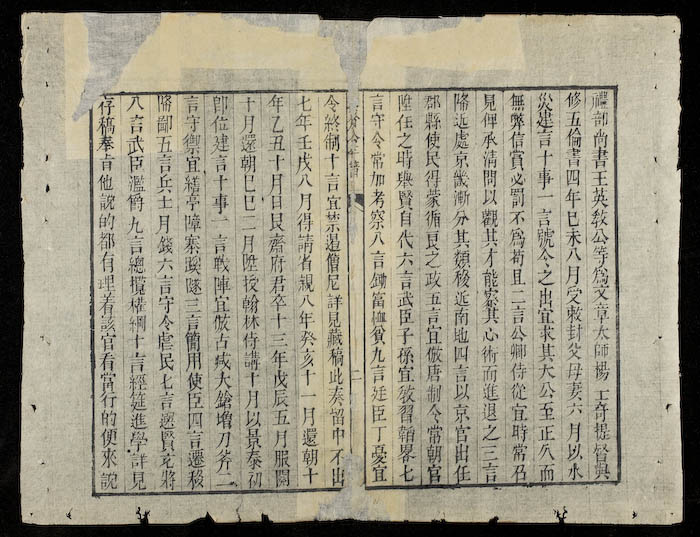 禮部尚書王英教公等為文章太師楊 士奇提督與
修五倫書四年己未八月受敕封父母妻六月以水
災建言十事一言號令之出宜求其大公至正久而
無弊信賞必罰不為苟且二言公卿侍從宜時常召
見俾承清問以觀其才能察其心術而進退之三言
降近處京畿漸分其類移近南地四言以京官出任
郡縣使民得蒙循良之政五言宜倣唐制令常朝官
陞任之時舉賢自代六言武臣子孫宜教習韜畧七
言守令常加考察八言鋤富恤貧九言廷臣丁憂宜
令終制十言宜禁遏僧尼詳見藏稿此奏留中不出
七年壬戌八月得請省親八年癸亥十一月還朝十
年乙丑十月日艮齋府君卒十三年戊辰五月服闋
十月還朝己巳二月陞授翰林侍講十月以景泰初
即位建言十事一言戰陣宜倣古戚大鎗增刀斧二
言守禦宜繕亭障塞蹊隧三言簡用使臣四言遷移
降鄙五言兵士月錢六言守令虐民七言選賢宅將
八言武臣濫爵九言總攬權綱十言經筵進學詳見
存稿奉旨他說的都有理着該官看當行的便來說
二